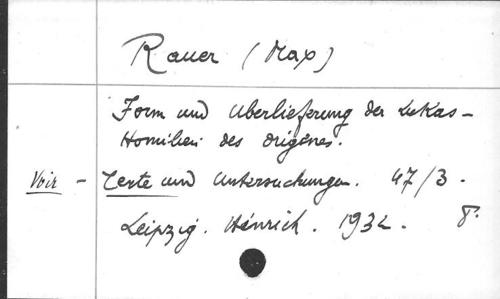 Rauer (Max)
Form und Uberlieferung der Lukas-
Homilien des Origenes.
Voir - Texte und Untersuchungen. 47/3.
Leipzig. Hinrich. 1932. 8°.